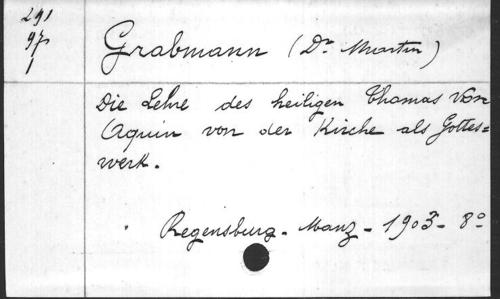 291
97
1
Grabmann (Dr Martin)
Die Lehre des heiligen Thomas von
Aquin von der Kirche als Gottes=
werk.
Regensburg - Manz - 1903 - 8º